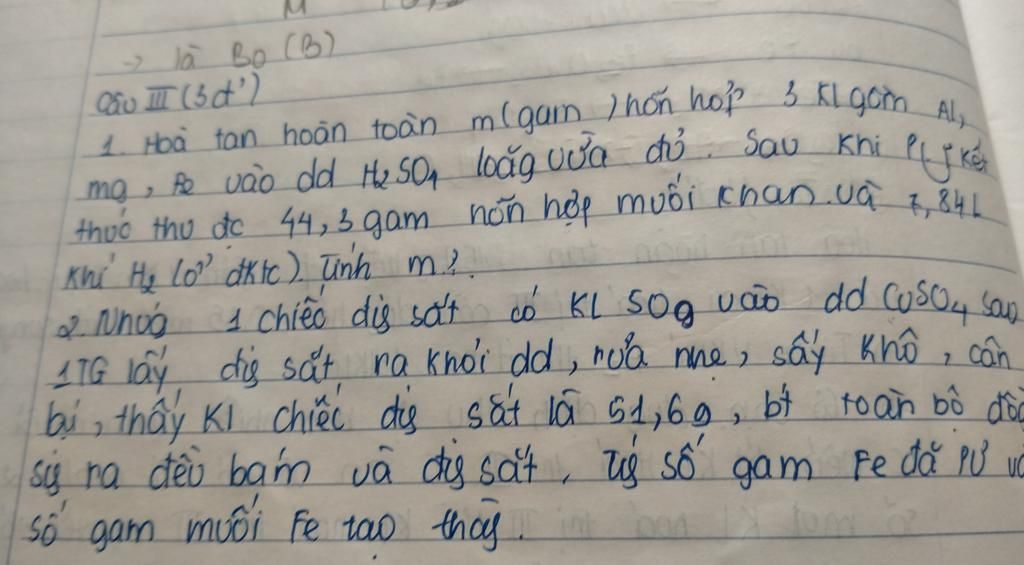 M
→ là Bo (B)
Câu III (3đ')
1. Hoà tan hoàn toàn m(gam) hỗn hợp 3 Kl gồm Al,
mg, Fe vào dd H₂SO₄ loãg vừa đủ. Sau khi kết
thúc thu đc 44,3 gam hỗn hợp muối khan và 7,84L
khí H₂ (ở đktc) Tính m?
2 Nhúg 1 chiếc dig sắt có KL 50g vào dd CuSO₄ sao
1 TG lấy dig sắt ra khỏi dd, rửa nhẹ, sấy khô, cân
lại, thấy Kl chiếc dig sắt là 51,6g, bt toàn bộ
ra đều bám và dig sắt, số gam Fe đã PƯ
số gam muối Fe tạo